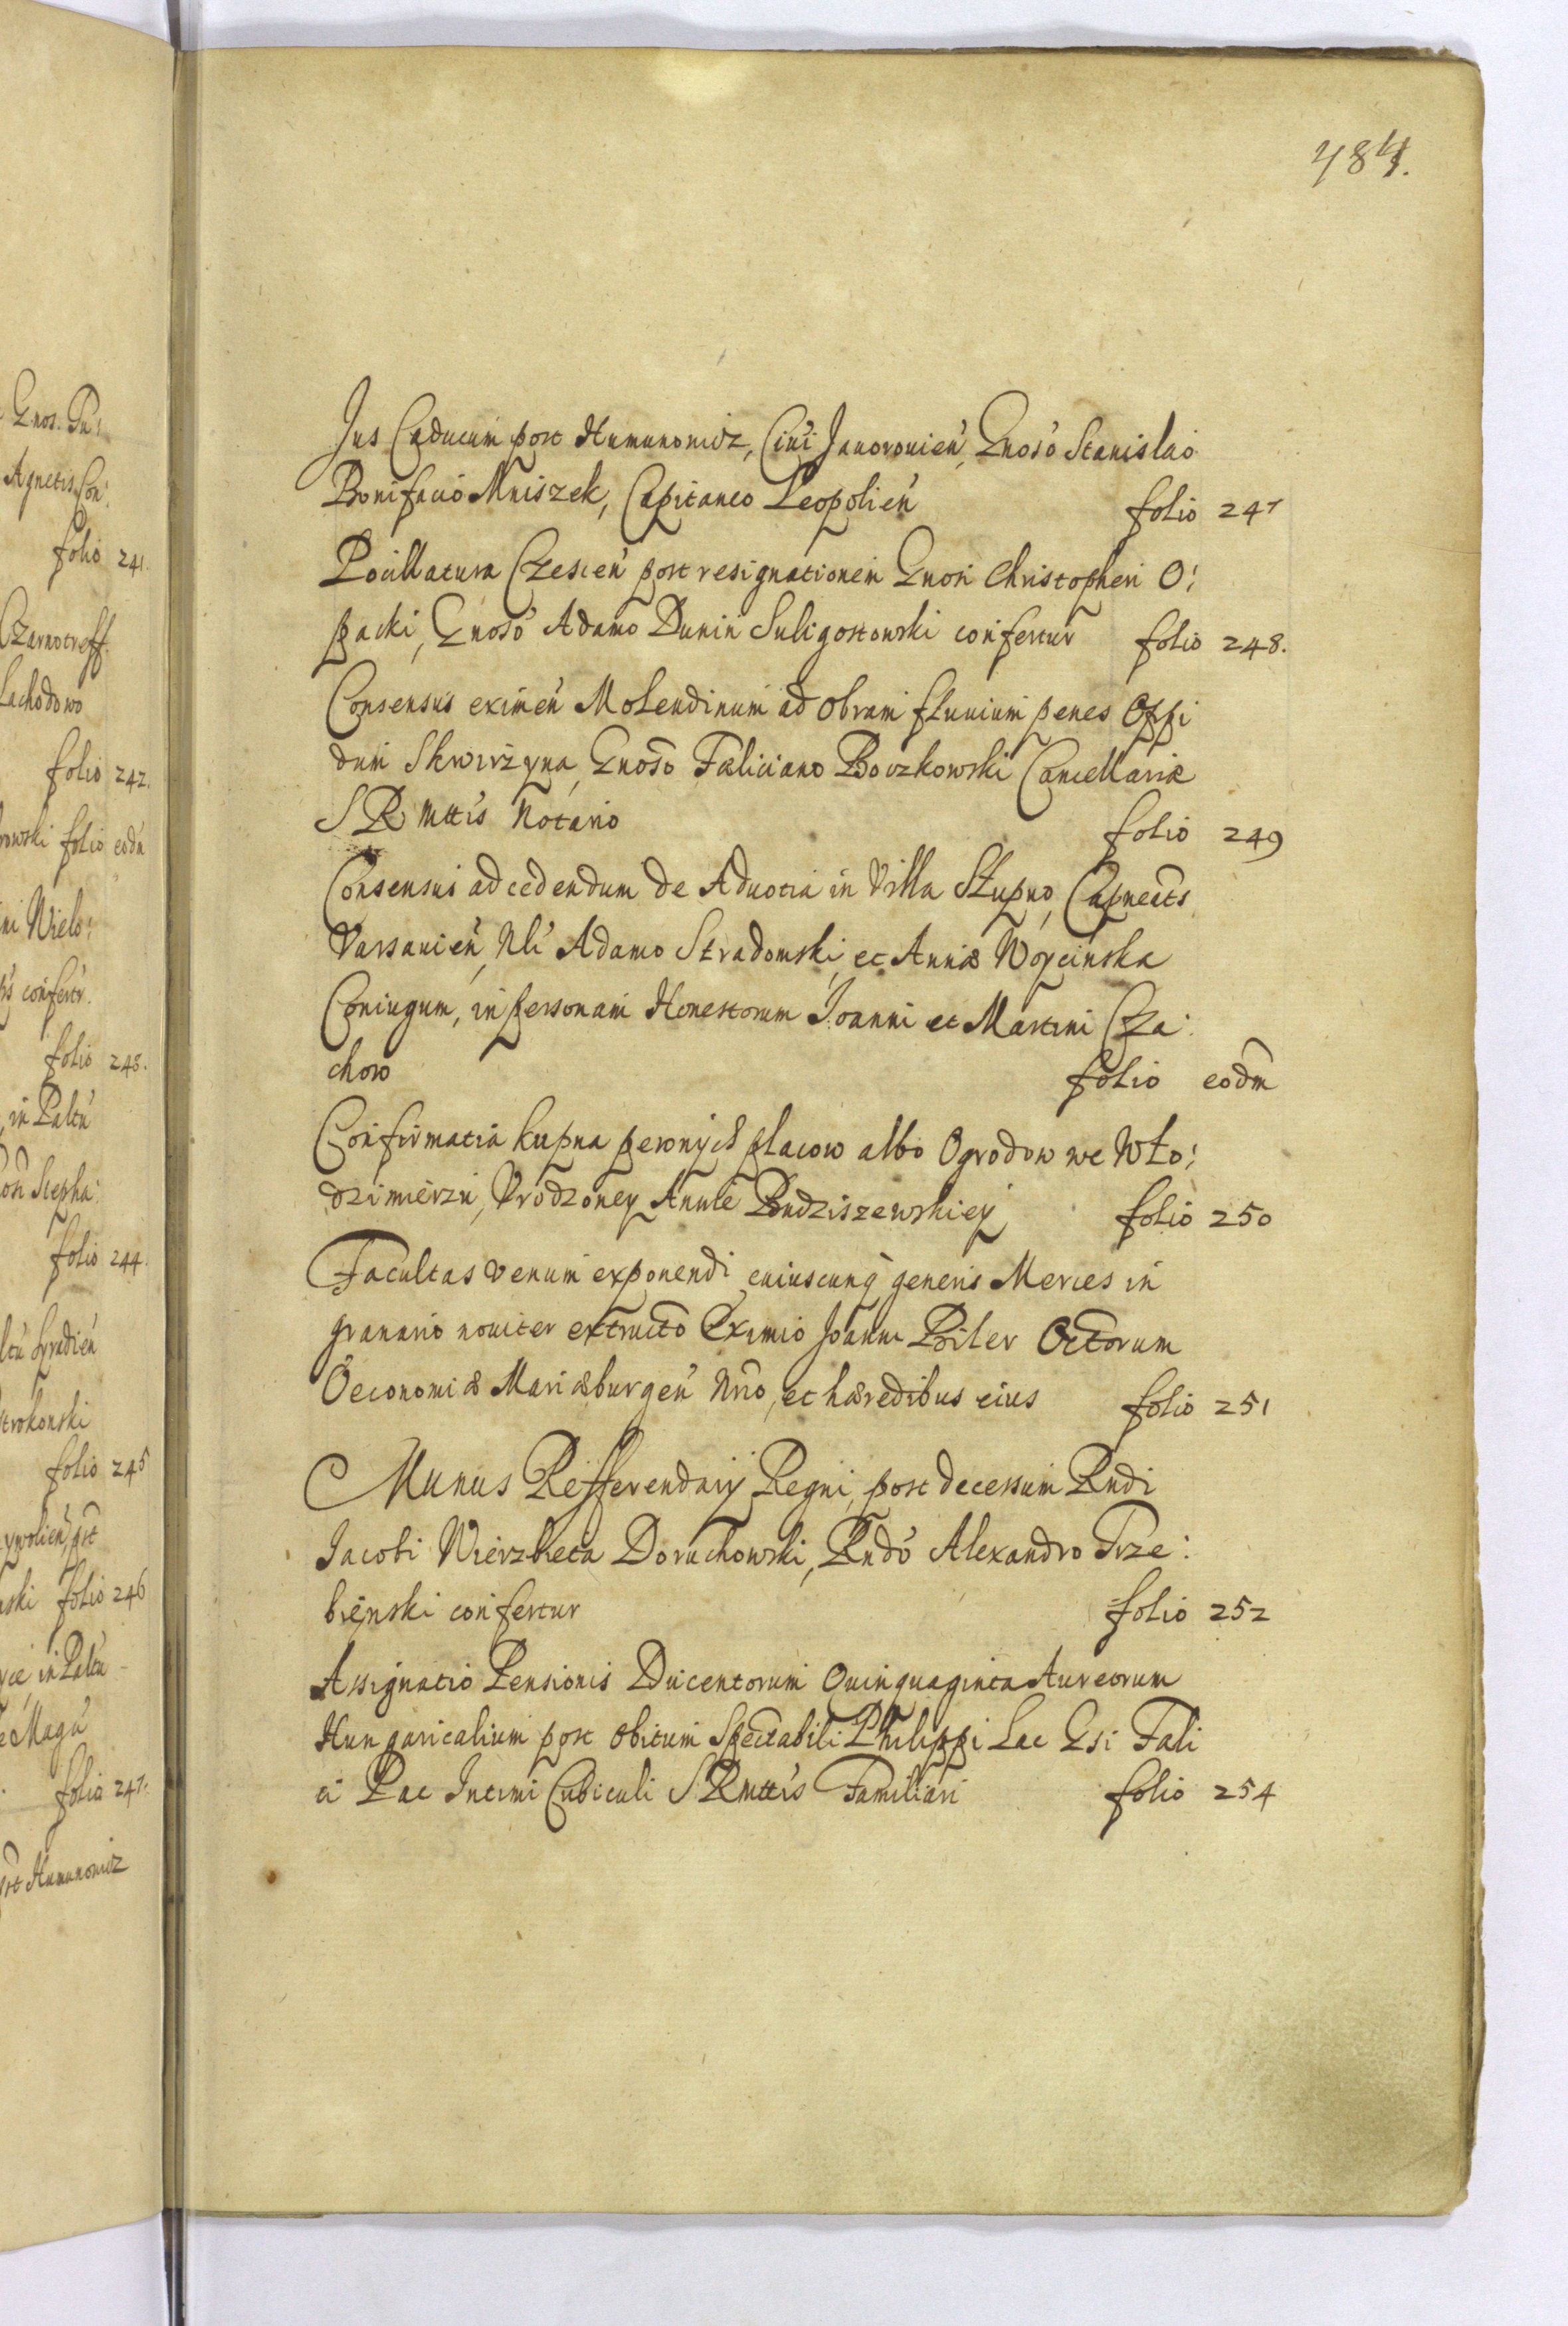 484.
Gnos. Pu:
Agnetis Con:
folio 241.
Czarnotreff.
Lachodowo
folio 242.
rowski folio eodn
ni Wielo:
confertr.
folio 243.
in Paltu
Stepha:
folio 244.
trokonski
folio 245
nski folio 246
in Paltu
Magu
folio 247.
Humunomicz
Jus Caducum post Humunomicz, Civi Javorovien, Gnoso Stanislao
Bonifacio Mniszek, Capitaneo Leopolien folio 247
Pocillatura Czescen post resignationem Gnosi Christopheri O:
packi, Gnoso Adamo Dunin Suligostowski confertur folio 248.
Consensus eximen Molendinum ad Obram fluvium penes Oppi
dum Skwirzyna, Gnoso Fæliciano Boczkowski Cancellariæ
SRMttis Notario folio 249
Consensus ad cedendum de Advotia in Villa Słupno, Capneats
Varsavien, Nli Adamo Stradomski, et Annæ Woycinska
Coniugum, in personam Honestorum Joanni et Martini Cza:
chow folio eodm
Confirmatia kupna pewnych placow albo Ogrodow we Wło:
dzimierzu, Vrodzoney Annie Pondziszewskiey folio 250
Facultas venum exponendi cuiuscunq generis Merces in
granario noviter extructo Eximio Joanni Piler Octorum
Oeconomiæ Mariæburgen Nrio, et hæredibus eius folio 251
Munus Refferendarij Regni, post decessum Rndi
Jacobi Wierzbieta Doruchowski, Rndo Alexandro Trze:
bienski confertur folio 252
Assignatio Pensionis Ducentorum Quinquaginta Aureorum
Hungaricalium post obitum Spectabili Philippi Lac Gsi Fali
ci Pac Intimi Cubiculi SRMttis Familiari folio 254